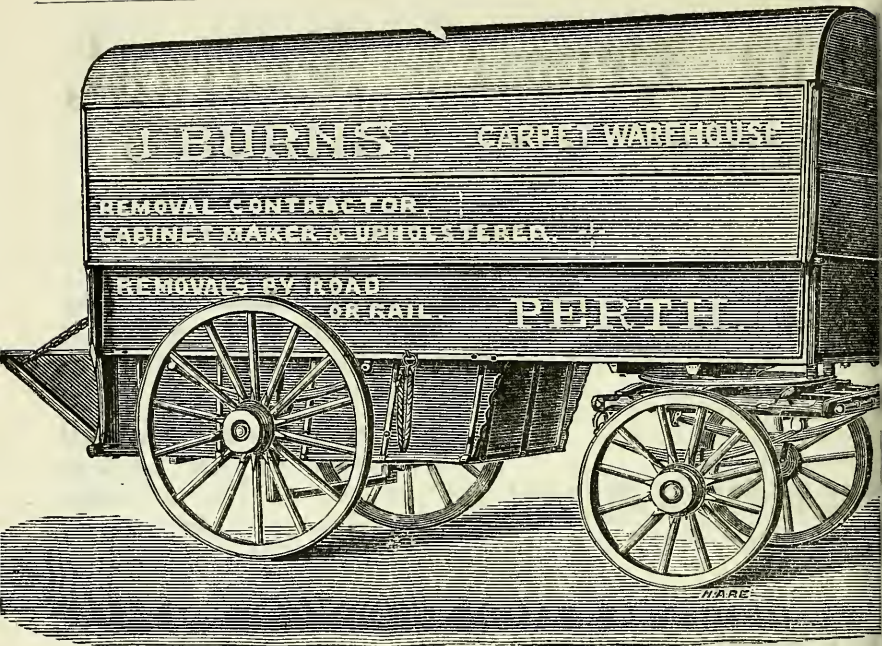 J BURNS, CARPET WAREHOUSE
REMOVAL CONTRACTOR.
CABINET MAKER & UPHOLSTERER.
REMOVALS BY ROAD
OR RAIL. PERTH.
HARE